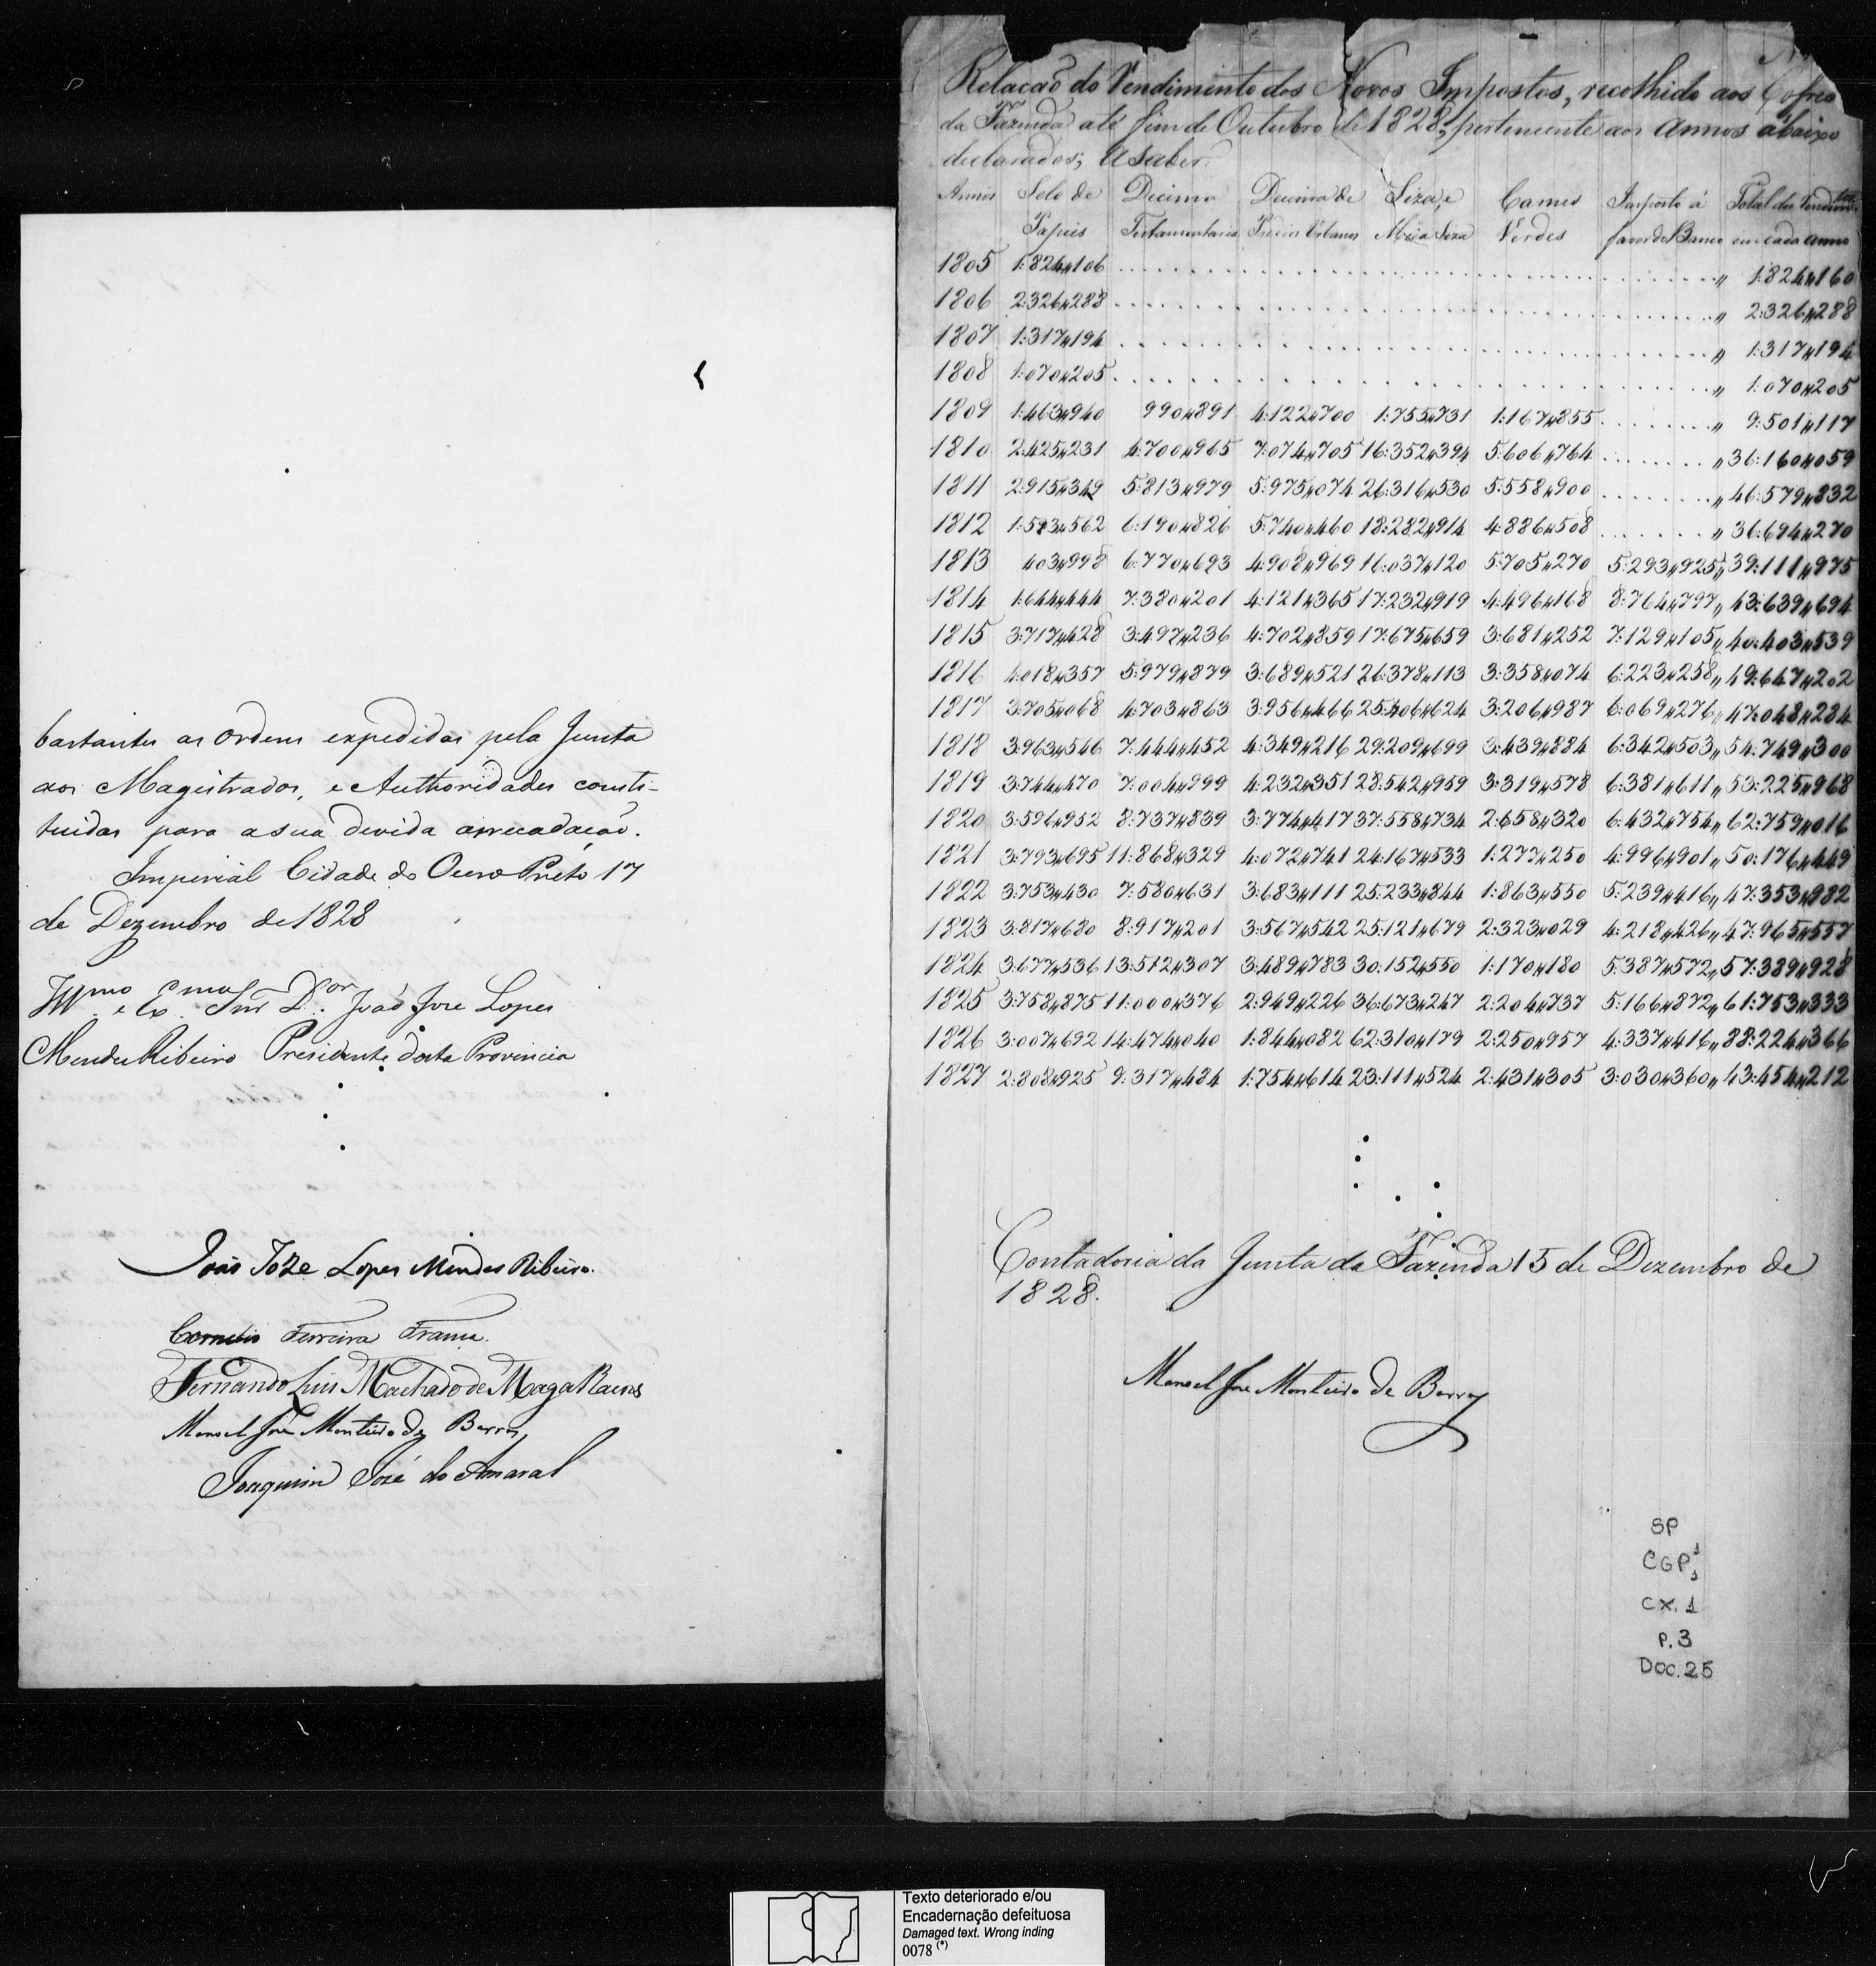 bastantes as Ordens expedidas pela Junta
aos Magistrados, e Authoridades consti-
tuidas para a sua devida arrecadação.
Imperial Cidade do Ouro Preto 17
de Dezembro de 1828
Illmo e Exmo Snr Dor João Jose Lopes
Mendes Ribeiro Presidente desta Provincia
João Joze Lopes Mendes Ribeiro.
Cornelio Ferreira França.
Fernando Luis Machado de Magalhaens
Manoel Jose Monteiro de Barros
Joaquim José do Amaral
Relação do Rendimento dos Novos Impostos, recolhido aos Cofres
da Fazenda até fim de Outubro de 1828, pertencente aos annos abaixo
declarados; a saber:
Annos Selo de Decima Decima de Siza, e Carnes Imposto á Total dos Rendimtos
Papeis Testamentaria Predios Urbanos Meia Siza Verdes favor do Banco em cada anno
1805 1:824,,106 ,, 1:824,,160
1806 2:326,,288 ,, 2:326,,288
1807 1:317,,194 ,, 1:317,,194
1808 1:070,,205 ,, 1:070,,205
1809 1:463,,940 990,,891 4:122,,700 1:755,,731 1:167,,855 ,, 9:501,,117
1810 2:425,,231 4:700,,965 7:074,,705 16:352,,394 5:606,,764 ,, 36:160,,059
1811 2:915,,349 5:813,,979 5:975,,074 26:316,,530 5:558,,900 ,, 46:579,,832
1812 1:593,,562 6:190,,826 5:740,,460 18:282,,914 4:886,,508 ,, 36:694,,270
1813 403,,998 6:770,,693 4:908,,969 16:037,,120 5:705,,270 5:293,,925,, 39:111,,975
1814 1:644,,444 7:380,,201 4:121,,365 17:232,,919 4:496,,168 8:764,,797,, 43:639,,694
1815 3:717,,428 3:497,,236 4:702,,859 17:675,,659 3:681,,252 7:129,,105,, 40:403,,539
1816 4:018,,357 5:979,,879 3:689,,521 26:378,,113 3:358,,074 6:223,,258,, 49:647,,202
1817 3:705,,068 4:703,,863 3:956,,466 25:406,,624 3:206,,987 6:069,,276,, 47:048,,284
1818 3:963,,546 7:444,,452 4:349,,216 29:209,,699 3:439,,884 6:342,,503,, 54:749,,300
1819 3:744,,470 7:004,,999 4:232,,351 28:542,,959 3:319,,578 6:381,,611,, 53:225,,968
1820 3:596,,952 8:737,,839 3:774,,417 37:558,,734 2:658,,320 6:432,,754,, 62:759,,016
1821 3:793,,695 11:868,,329 4:072,,741 24:167,,533 1:277,,250 4:996,,901,, 50:176,,449
1822 3:753,,430 7:580,,631 3:683,,111 25:233,,844 1:863,,550 5:239,,416,, 47:353,,982
1823 3:817,,680 8:917,,201 3:567,,542 25:121,,679 2:323,,029 4:218,,426,, 47:965,,557
1824 3:677,,536 13:512,,307 3:489,,783 30:152,,550 1:170,,180 5:387,,572,, 57:389,,928
1825 3:758,,875 11:000,,376 2:949,,226 36:673,,247 2:204,,737 5:166,,872,, 61:753,,333
1826 3:007,,692 14:474,,040 1:844,,082 62:310,,179 2:250,,957 4:337,,416,, 88:224,,366
1827 2:808,,925 9:317,,484 1:754,,614 23:111,,524 2:431,,305 3:030,,360,, 43:454,,212
Contadoria da Junta da Fazenda 15 de Dezembro de
1828.
Manoel Jose Monteiro de Barros
SP
CGP1
1
CX. 1
P. 3
DOC. 25
Texto deteriorado e/ou
Encadernação defeituosa
Damaged text. Wrong inding
0078 (*)